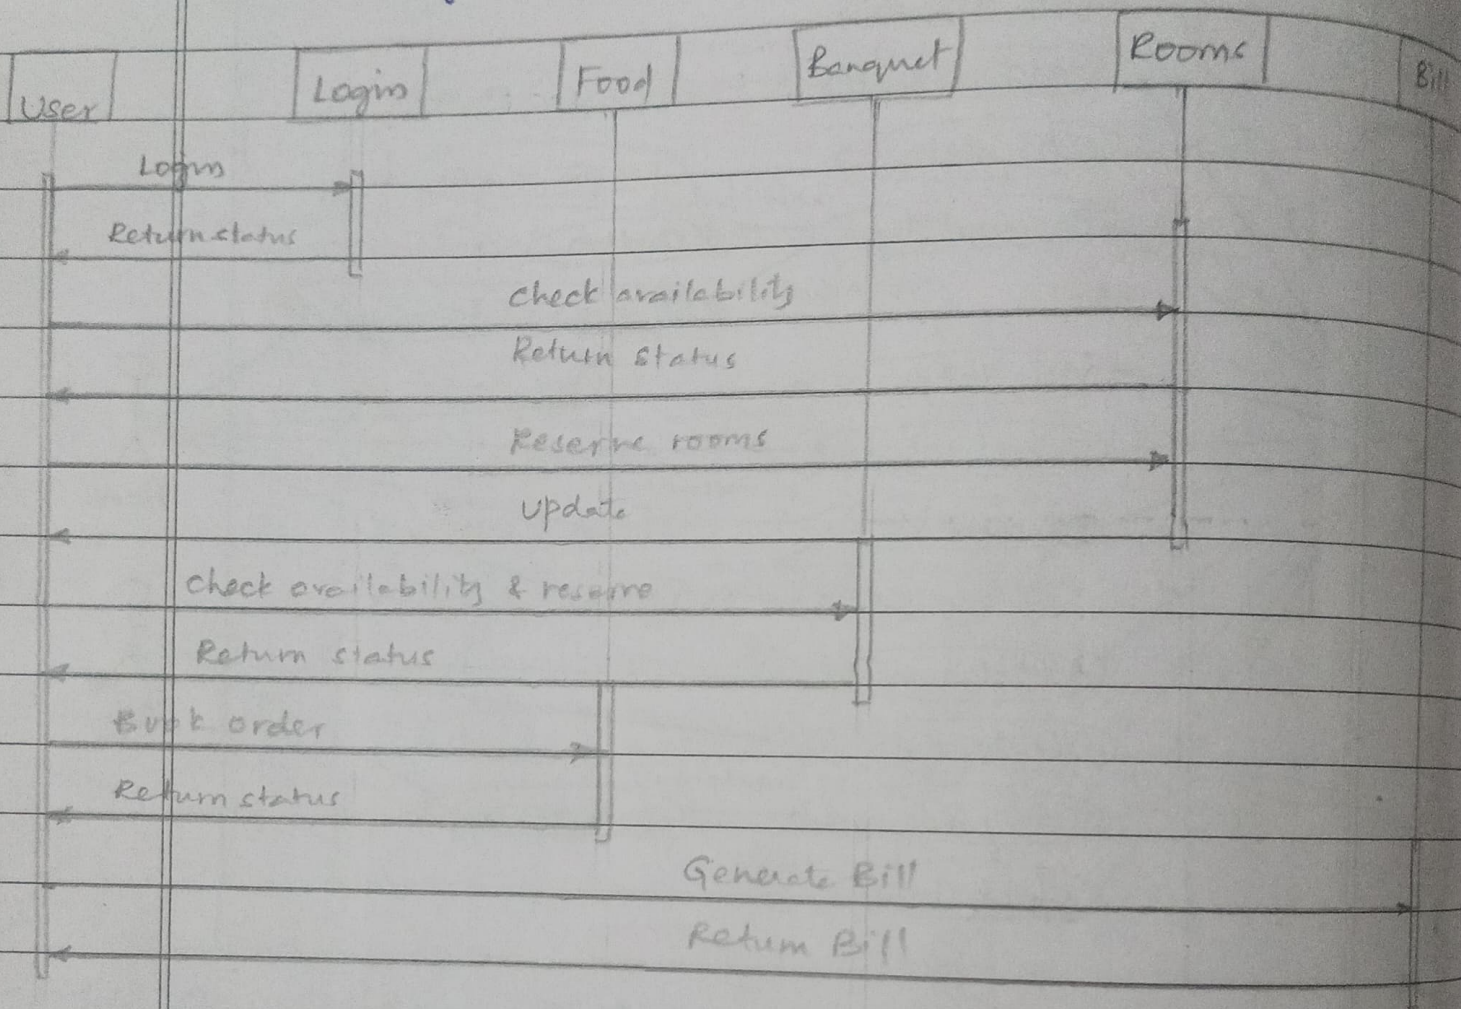 User Login Food Banquet Rooms Bill
Login
Return status
check availability
Return status
Reserve rooms
update
check availability & reserve
Return status
Book order
Return status
Generate Bill
Return Bill